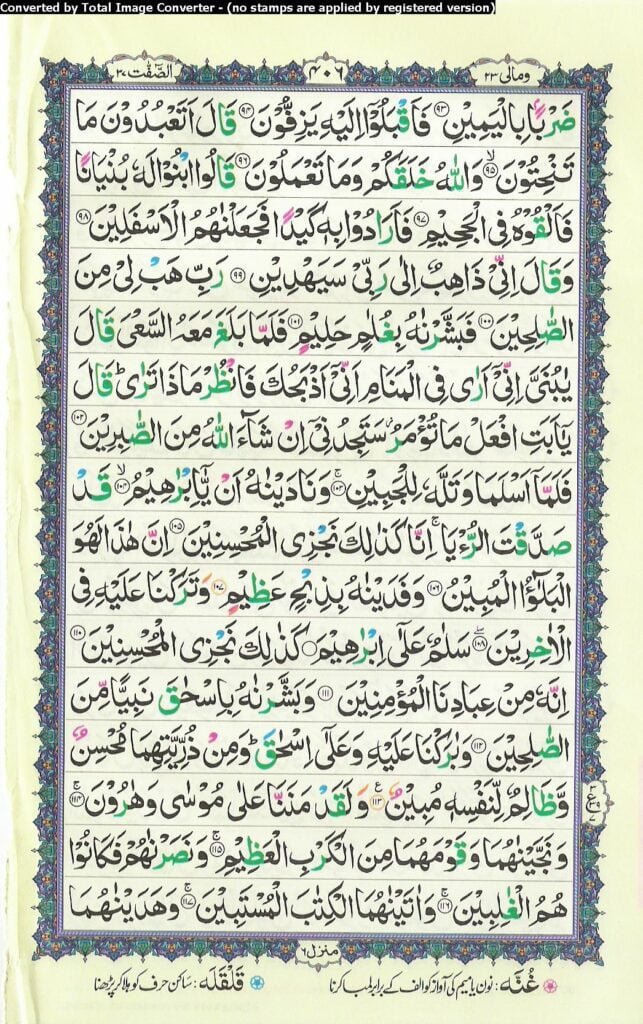 Converted by Total Image Converter - (no stamps are applied by registered version)
ومالی ۲۳ ۴۰۶ الصّٰٓفّٰت ۳۷
ضَرْبًۢا بِالْيَمِيْنِ ﴿۹۳﴾ فَاَقْبَلُوْۤا اِلَيْهِ يَزِفُّوْنَ ﴿۹۴﴾ قَالَ اَتَعْبُدُوْنَ مَا
تَنْحِتُوْنَ ۙ﴿۹۵﴾ وَاللّٰهُ خَلَقَكُمْ وَمَا تَعْمَلُوْنَ ﴿۹۶﴾ قَالُوا ابْنُوْا لَهٗ بُنْيَانًا
فَاَلْقُوْهُ فِى الْجَحِيْمِ ﴿۹۷﴾ فَاَرَادُوْا بِهٖ كَيْدًا فَجَعَلْنٰهُمُ الْاَسْفَلِيْنَ ﴿۹۸﴾
وَقَالَ اِنِّىْ ذَاهِبٌ اِلٰى رَبِّىْ سَيَهْدِيْنِ ﴿۹۹﴾ رَبِّ هَبْ لِىْ مِنَ
الصّٰلِحِيْنَ ﴿۱۰۰﴾ فَبَشَّرْنٰهُ بِغُلٰمٍ حَلِيْمٍ ﴿۱۰۱﴾ فَلَمَّا بَلَغَ مَعَهُ السَّعْىَ قَالَ
يٰبُنَىَّ اِنِّىْۤ اَرٰى فِى الْمَنَامِ اَنِّىْۤ اَذْبَحُكَ فَانْظُرْ مَاذَا تَرٰىؕ قَالَ
يٰۤاَبَتِ افْعَلْ مَا تُؤْمَرُ سَتَجِدُنِىْۤ اِنْ شَآءَ اللّٰهُ مِنَ الصّٰبِرِيْنَ ﴿۱۰۲﴾
فَلَمَّاۤ اَسْلَمَا وَتَلَّهٗ لِلْجَبِيْنِ ۚ﴿۱۰۳﴾ وَنَادَيْنٰهُ اَنْ يّٰۤاِبْرٰهِيْمُ ۙ﴿۱۰۴﴾ قَدْ
صَدَّقْتَ الرُّءْيَا ۚ اِنَّا كَذٰلِكَ نَجْزِى الْمُحْسِنِيْنَ ﴿۱۰۵﴾ اِنَّ هٰذَا لَهُوَ
الْبَلٰٓؤُا الْمُبِيْنُ ﴿۱۰۶﴾ وَفَدَيْنٰهُ بِذِبْحٍ عَظِيْمٍ ﴿۱۰۷﴾ وَتَرَكْنَا عَلَيْهِ فِى
الْاٰخِرِيْنَ ۖ﴿۱۰۸﴾ سَلٰمٌ عَلٰٓى اِبْرٰهِيْمَ ○ كَذٰلِكَ نَجْزِى الْمُحْسِنِيْنَ ﴿۱۱۰﴾
اِنَّهٗ مِنْ عِبَادِنَا الْمُؤْمِنِيْنَ ﴿۱۱۱﴾ وَبَشَّرْنٰهُ بِاِسْحٰقَ نَبِيًّا مِّنَ
الصّٰلِحِيْنَ ﴿۱۱۲﴾ وَبٰرَكْنَا عَلَيْهِ وَعَلٰٓى اِسْحٰقَؕ وَمِنْ ذُرِّيَّتِهِمَا مُحْسِنٌ
وَّظَالِمٌ لِّنَفْسِهٖ مُبِيْنٌ ﴿۱۱۳﴾ وَلَقَدْ مَنَنَّا عَلٰى مُوْسٰى وَهٰرُوْنَ ۚ﴿۱۱۴﴾
وَنَجَّيْنٰهُمَا وَقَوْمَهُمَا مِنَ الْكَرْبِ الْعَظِيْمِ ۚ﴿۱۱۵﴾ وَنَصَرْنٰهُمْ فَكَانُوْا
هُمُ الْغٰلِبِيْنَ ۚ﴿۱۱۶﴾ وَاٰتَيْنٰهُمَا الْكِتٰبَ الْمُسْتَبِيْنَ ۚ﴿۱۱۷﴾ وَهَدَيْنٰهُمَا
منزل ۶
غُنَّه: نون یا میم کی آواز کو الف کے برابر لمبا کرنا قَلْقَلَه: ساکن حرف کو ہلا کر پڑھنا